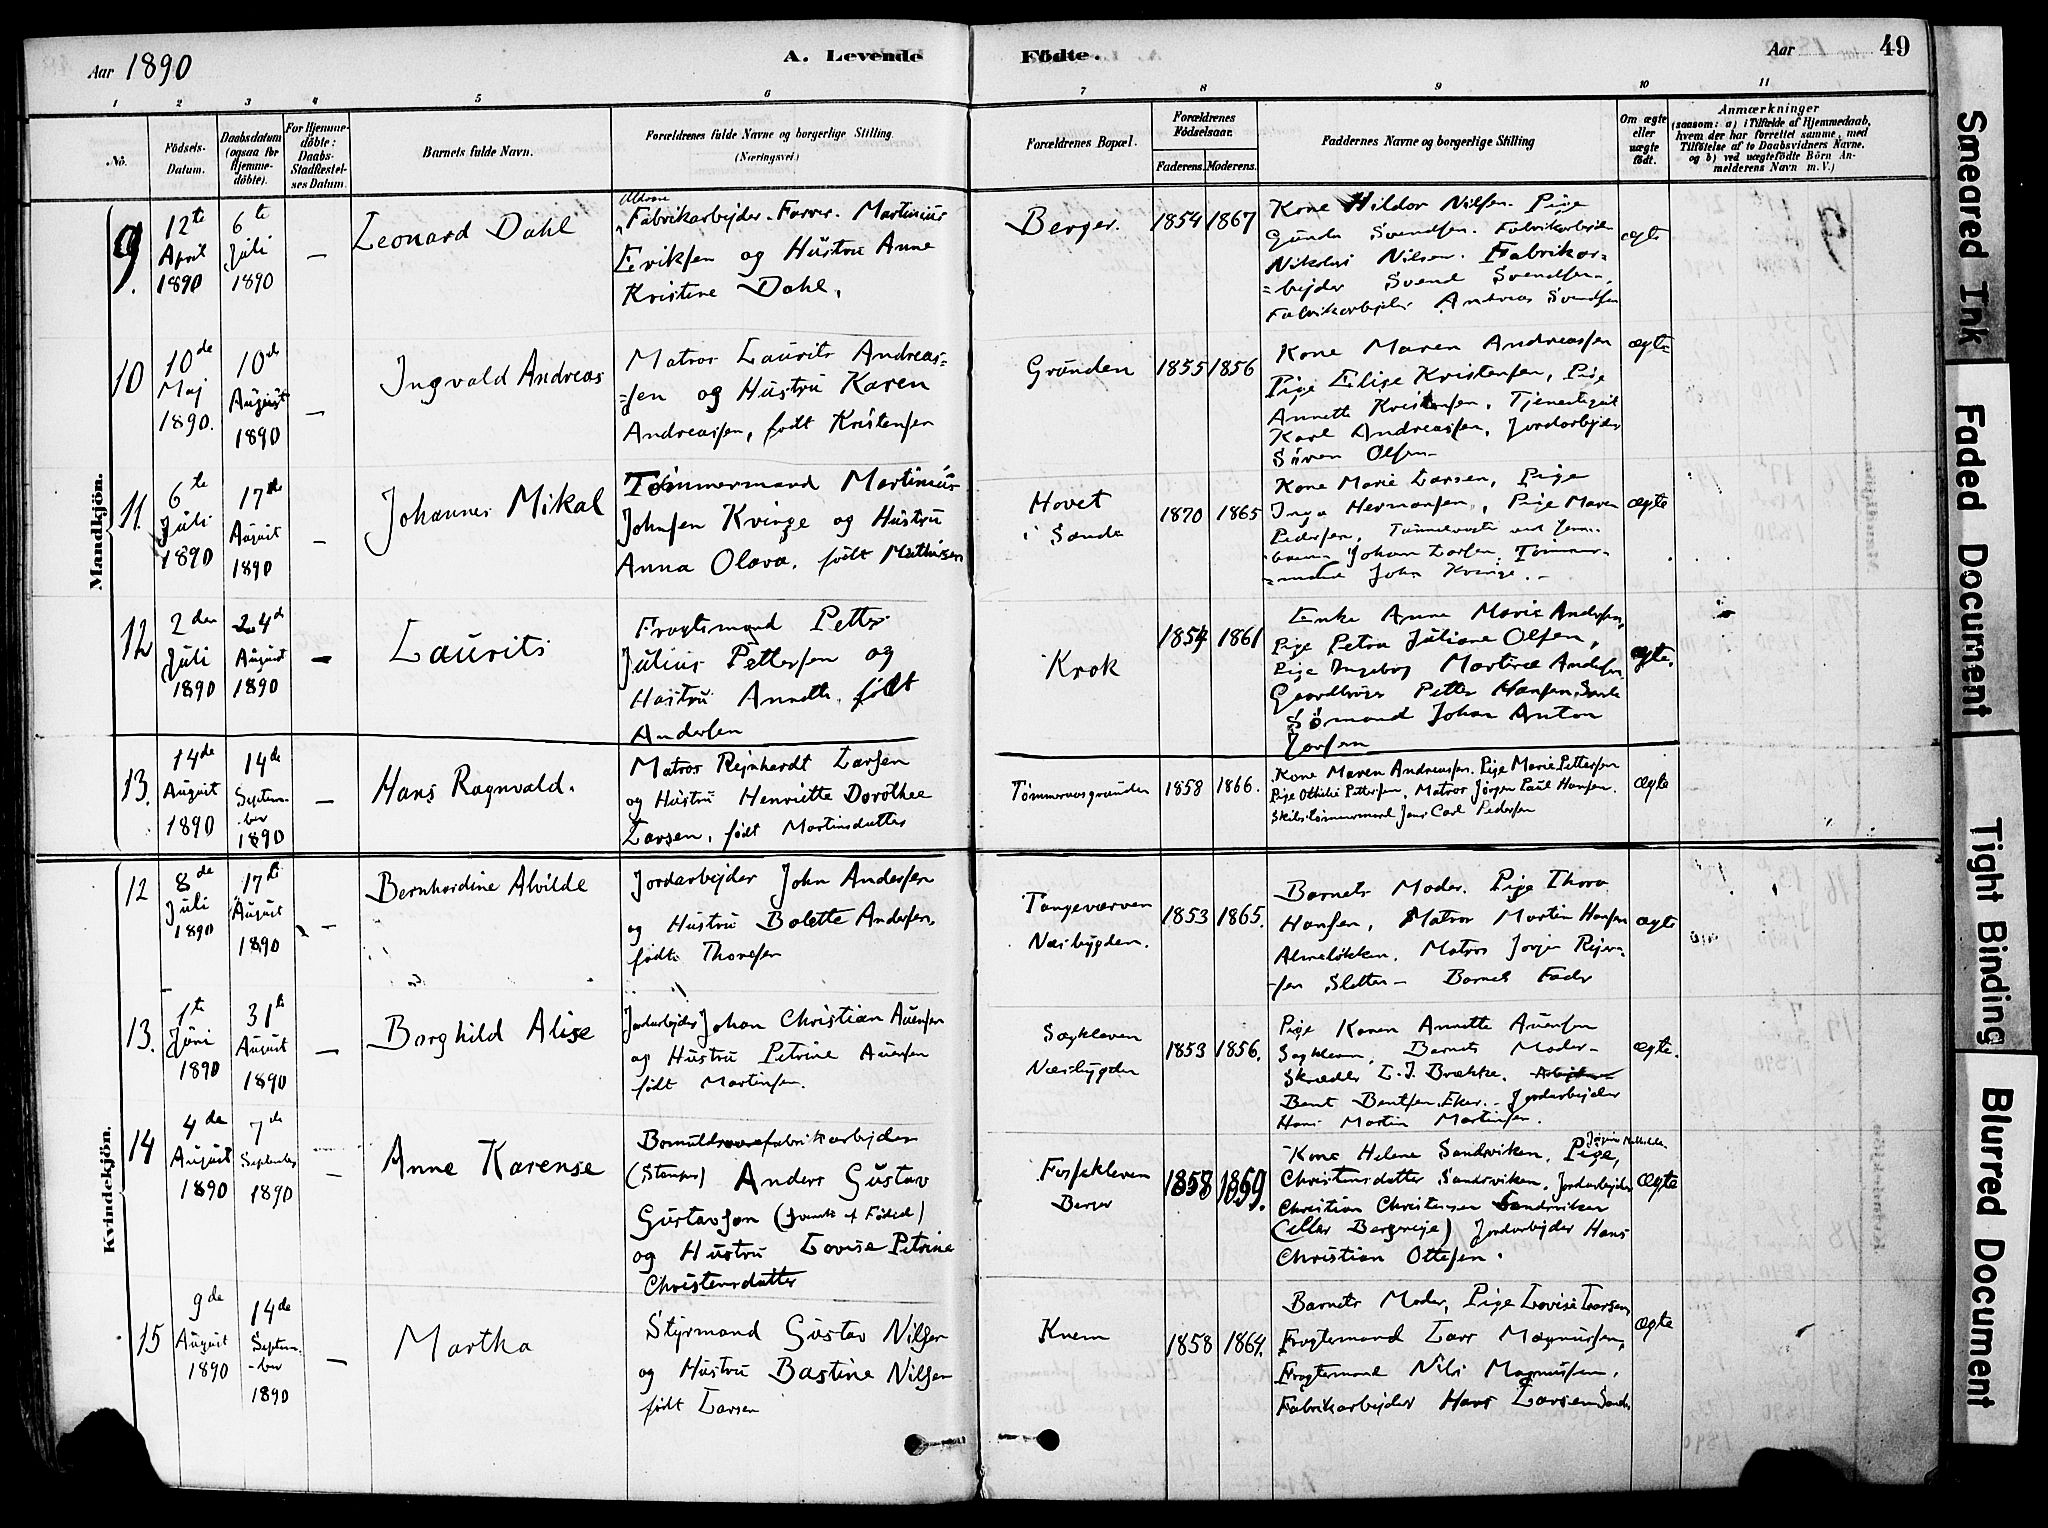 Aar 1890
A. Levende
Födte.
Aar
49
1
2
3
4
5
6
7
8
9
10
11
No.
Födsels-
Datum.
Daabsdatum
(ogsaa for
Hjemme-
döbte).
For Hjemme-
döbte:
Daabs-
Stadfæstel-
ses Datum.
Barnets fulde Navn.
Forældrenes fulde Navne og borgerlige Stilling.
(Næringsvei.)
Forældrenes Bopæl.
Forældrenes
Födselsaar.
Faderens.
Moderens.
Faddernes Navne og borgerlige Stilling
Om ægte
eller
uægte
födt.
Anmærkninger
(saasom: a) i Tilfælde af Hjemmedaab,
hvem der har forrettet samme, med
Tilföielse af to Daabsvidners Navne.
og b) ved uægtefödte Börn An-
melderens Navn m.V.)
Mandkjön.
9.
12te
April
1890
6te
Juli
1890
—
Leonard Dahl
Fabrikarbejder. Farver. Martinius
Eriksen og Hustru Anne
Kristine Dahl.
Berger.
1854
1867
Kone Hildor Nilsen. Pige
Gunda Svendsen. Fabrikarbejder
Nikolai Nilsen. Fabrikar=
=bejder Svend Svendsen.
Fabrikarbejder Andreas Svendsen
ægte
10
10de
Maj
1890.
10de
August
1890
—
Ingvald Andreas
Matros Laurits Andreas=
=sen og Hustru Karen
Andreassen, født Kristensen
Grunden
1855
1856
Kone Maren Andreassen
Pige Elise Kristensen, Pige
Annette Kristensen, Tjenestegut
Karl Andreassen, Jordarbejder
Søren Olsen
ægte
11.
6te
Juli
1890
17de
August
1890
—
Johannes Mikal
Tømmermand Martinius
Johnsen Kvinge og Hustru
Anna Olava, født Mathisen
Hovet
i Sande
1870
1865
Kone Marie Larsen, Pige
Inga Hermansen, Pige Maren
Pedersen, ved Jern=
Johan Larsen, Tømmer=
=mand John Kvinge.
ægte
12
2den
Juli
1890
24de
August
1890
—
Laurits
Fragtemand Petter
Julius Pettersen og
Hustru Annette, født
Andersen
Krok
1854
1861
Enke Anne Marie Andersen,
Pige Petra Juliane Olsen,
Pige Ingeborg Martine Andersen
Gaardbruger Petter Hansen, Sande
Sømand Johan Anton
ægte.
13.
14de
August
1890
14de
Septem-
ber
1890
—
Hans Ragnvald.
Matros Rejnhardt Larsen
og Hustru Henriette Dorothee
Larsen, født Martinsdatter
Tømmeraasgrunden
1858
1866.
Kone Maren Andreassen. Pige Marie Pettersen
Pige Othilie Pettersen, Matros Jørgen Paul Hansen.
Skibstømmermand Jens Carl Pedersen
ægte
Kvindekjön.
12
8de
Juli
1890
17de
August
1890
—
Bernhardine Alvilde
Jordarbejder John Andersen
og Hustru Bolette Andersen,
født Thoresen
Tangeværven
Næsbygden.
1853
1865.
Barnets Moder. Pige Thora
Hansen, Matros Martin Hansen
Almeløkken, Matros
Sletten — Barnets Fader
ægte
13.
1te
Juni
1890
31te
August
1890
—
Borghild Alise
Jordarbejder Johan Christian Auensen
og Hustru Petrine Auensen
født Martinsen.
Sagkleven
Næsbygden
1853
1856.
Pige Karen Annette Auensen
Sagkleven, Barnets Moder —
Skrædder L. J. Brække.
Bent Bentsen Eker. Jordarbejder
Hans Martin Martinsen.
ægte.
14
4de
August
1890
7de
September
1890
—
Anne Karense
Bomuldsvarefabrikarbejder
(Stamper) Anders Gustav
Gustavsøn (svensk af Fødsel)
og Hustru Lovise Petrine
Christensdatter
Fossekleven
Berger
1858
1869.
Kone Helene Sandviken, Pige,
Christensdatter Sandviken, Jordarbejder
Christian Christensen Sandviken
(eller Bergseje) Jordarbejder Hans
Christian Ottesen.
ægte
15
9de
August
1890
14de
Septem-
-ber
1890
—
Martha
Styrmand Gustav Nilsen
og Hustru Bastine Nilsen
født Larsen
Knem
1858
1864.
Barnets Moder, Pige Lovise Larsen,
Fragtemand Lars Magnussen,
Fragtemand Nils Magnussen,
Fabrikarbejder Hans Larsen Sande
ægte
Smeared Ink
Faded Document
Tight Binding
Blurred Document